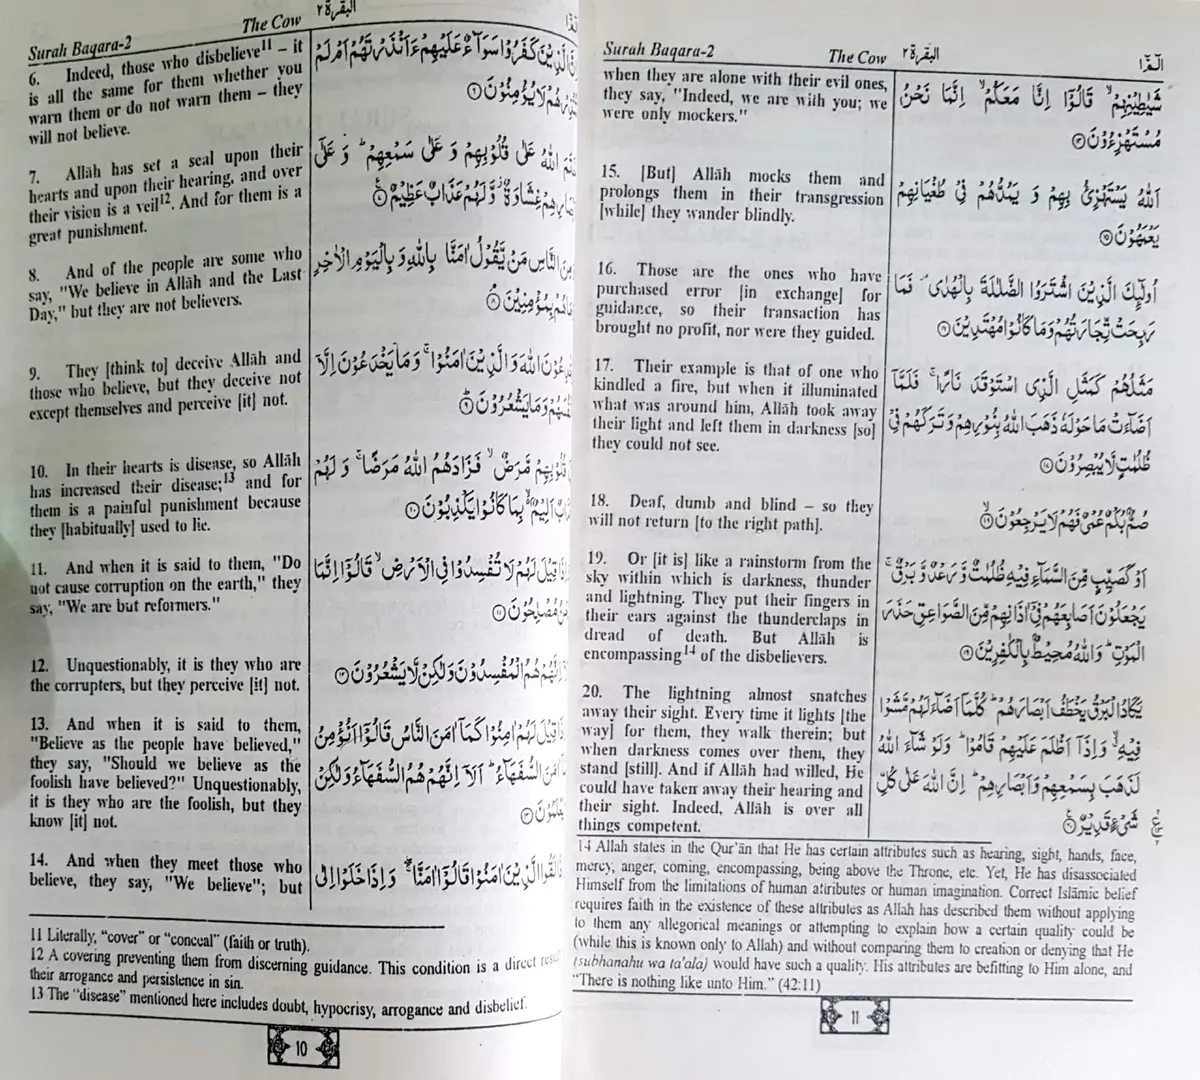 Surah Baqara-2 The Cow البقرة ٢
6. Indeed, those who disbelieve11 – it
is all the same for them whether you
warn them or do not warn them – they
will not believe.
7. Allāh has set a seal upon their
hearts and upon their hearing, and over
their vision is a veil12. And for them is a
great punishment.
8. And of the people are some who
say, "We believe in Allāh and the Last
Day," but they are not believers.
9. They [think to] deceive Allāh and
those who believe, but they deceive not
except themselves and perceive [it] not.
10. In their hearts is disease, so Allāh
has increased their disease;13 and for
them is a painful punishment because
they [habitually] used to lie.
11. And when it is said to them, "Do
not cause corruption on the earth," they
say, "We are but reformers."
12. Unquestionably, it is they who are
the corrupters, but they perceive [it] not.
13. And when it is said to them,
"Believe as the people have believed,"
they say, "Should we believe as the
foolish have believed?" Unquestionably,
it is they who are the foolish, but they
know [it] not.
14. And when they meet those who
believe, they say, "We believe"; but
الَّذِيْنَ كَفَرُوْا سَوَآءٌ عَلَيْهِمْ ءَاَنْذَرْتَهُمْ اَمْ لَمْ
هُمْ لَا يُؤْمِنُوْنَ ۝٦
اللّٰهُ عَلٰى قُلُوْبِهِمْ وَ عَلٰى سَمْعِهِمْ ؕ وَ عَلٰٓى
غِشَاوَةٌ ؗ وَّ لَهُمْ عَذَابٌ عَظِيْمٌ ۝٧
النَّاسِ مَنْ يَّقُوْلُ اٰمَنَّا بِاللّٰهِ وَ بِالْيَوْمِ الْاٰخِرِ
بِمُؤْمِنِيْنَ ۝٨
اللّٰهَ وَ الَّذِيْنَ اٰمَنُوْا ۚ وَ مَا يَخْدَعُوْنَ اِلَّاۤ
وَ مَا يَشْعُرُوْنَ ۝٩
قُلُوْبِهِمْ مَّرَضٌ ۙ فَزَادَهُمُ اللّٰهُ مَرَضًا ۚ وَ لَهُمْ
اَلِيْمٌۢ ۙ بِمَا كَانُوْا يَكْذِبُوْنَ ۝١٠
قِيْلَ لَهُمْ لَا تُفْسِدُوْا فِي الْاَرْضِ ۙ قَالُوْۤا اِنَّمَا
مُصْلِحُوْنَ ۝١١
اِنَّهُمْ هُمُ الْمُفْسِدُوْنَ وَ لٰكِنْ لَّا يَشْعُرُوْنَ ۝١٢
قِيْلَ لَهُمْ اٰمِنُوْا كَمَاۤ اٰمَنَ النَّاسُ قَالُوْۤا اَنُؤْمِنُ
اٰمَنَ السُّفَهَآءُ ؕ اَلَاۤ اِنَّهُمْ هُمُ السُّفَهَآءُ وَ لٰكِنْ
۝١٣
لَقُوا الَّذِيْنَ اٰمَنُوْا قَالُوْۤا اٰمَنَّا ۖۚ وَ اِذَا خَلَوْا اِلٰى
11 Literally, “cover” or “conceal” (faith or truth).
12 A covering preventing them from discerning guidance. This condition is a direct result
their arrogance and persistence in sin.
13 The “disease” mentioned here includes doubt, hypocrisy, arrogance and disbelief.
10
Surah Baqara-2 The Cow البقرة ٢ الٓمّٓ ١
when they are alone with their evil ones,
they say, "Indeed, we are with you; we
were only mockers."
15. [But] Allāh mocks them and
prolongs them in their transgression
[while] they wander blindly.
16. Those are the ones who have
purchased error [in exchange] for
guidance, so their transaction has
brought no profit, nor were they guided.
17. Their example is that of one who
kindled a fire, but when it illuminated
what was around him, Allāh took away
their light and left them in darkness [so]
they could not see.
18. Deaf, dumb and blind – so they
will not return [to the right path].
19. Or [it is] like a rainstorm from the
sky within which is darkness, thunder
and lightning. They put their fingers in
their ears against the thunderclaps in
dread of death. But Allāh is
encompassing14 of the disbelievers.
20. The lightning almost snatches
away their sight. Every time it lights [the
way] for them, they walk therein; but
when darkness comes over them, they
stand [still]. And if Allāh had willed, He
could have taken away their hearing and
their sight. Indeed, Allāh is over all
things competent.
شَيٰطِيْنِهِمْ ۙ قَالُوْۤا اِنَّا مَعَكُمْ ۙ اِنَّمَا نَحْنُ
مُسْتَهْزِءُوْنَ ۝١٤
اَللّٰهُ يَسْتَهْزِئُ بِهِمْ وَ يَمُدُّهُمْ فِيْ طُغْيَانِهِمْ
يَعْمَهُوْنَ ۝١٥
اُولٰٓئِكَ الَّذِيْنَ اشْتَرَوُا الضَّلٰلَةَ بِالْهُدٰى ۪ فَمَا
رَبِحَتْ تِّجَارَتُهُمْ وَ مَا كَانُوْا مُهْتَدِيْنَ ۝١٦
مَثَلُهُمْ كَمَثَلِ الَّذِي اسْتَوْقَدَ نَارًا ۚ فَلَمَّاۤ
اَضَآءَتْ مَا حَوْلَهٗ ذَهَبَ اللّٰهُ بِنُوْرِهِمْ وَ تَرَكَهُمْ فِيْ
ظُلُمٰتٍ لَّا يُبْصِرُوْنَ ۝١٧
صُمٌّۢ بُكْمٌ عُمْيٌ فَهُمْ لَا يَرْجِعُوْنَ ۙ۝١٨
اَوْ كَصَيِّبٍ مِّنَ السَّمَآءِ فِيْهِ ظُلُمٰتٌ وَّ رَعْدٌ وَّ بَرْقٌ ۚ
يَجْعَلُوْنَ اَصَابِعَهُمْ فِيْۤ اٰذَانِهِمْ مِّنَ الصَّوَاعِقِ حَذَرَ
الْمَوْتِ ؕ وَ اللّٰهُ مُحِيْطٌۢ بِالْكٰفِرِيْنَ ۝١٩
يَكَادُ الْبَرْقُ يَخْطَفُ اَبْصَارَهُمْ ؕ كُلَّمَاۤ اَضَآءَ لَهُمْ مَّشَوْا
فِيْهِ ۙ وَ اِذَاۤ اَظْلَمَ عَلَيْهِمْ قَامُوْا ؕ وَ لَوْ شَآءَ اللّٰهُ
لَذَهَبَ بِسَمْعِهِمْ وَ اَبْصَارِهِمْ ؕ اِنَّ اللّٰهَ عَلٰى كُلِّ
شَيْءٍ قَدِيْرٌ ۝٢٠
14 Allah states in the Qur’ān that He has certain attributes such as hearing, sight, hands, face,
mercy, anger, coming, encompassing, being above the Throne, etc. Yet, He has disassociated
Himself from the limitations of human attributes or human imagination. Correct Islāmic belief
requires faith in the existence of these attributes as Allah has described them without applying
to them any allegorical meanings or attempting to explain how a certain quality could be
(while this is known only to Allah) and without comparing them to creation or denying that He
(subhanahu wa ta'ala) would have such a quality. His attributes are befitting to Him alone, and
“There is nothing like unto Him.” (42:11)
11